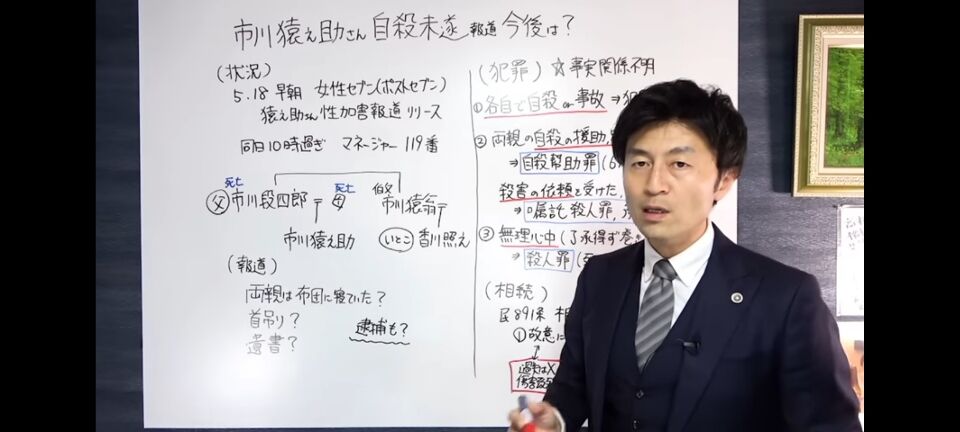 市川猿之助さん自殺未遂報道 今後は?
(状況)
5.18 早朝 女性セブン(ポストセブン)
猿之助さん性加害報道リリース
同日10時過ぎ マネージャー 119番
死亡 死亡 伯父
父 市川段四郎 母 市川猿翁
市川猿之助 いとこ 香川照之
(報道)
両親は布団に寝ていた?
首吊り?
遺書?
逮捕も?
(犯罪) ☆事実関係不明
①各自で自殺or事故 ⇒犯
②両親の自殺の援助、
⇒自殺幇助罪(6
殺害の依頼を受けた、
⇒嘱託殺人罪,
③無理心中(了承得ず巻き
⇒殺人罪(
(相続)
民891条 相
①故意に
過失はX
傷害致死